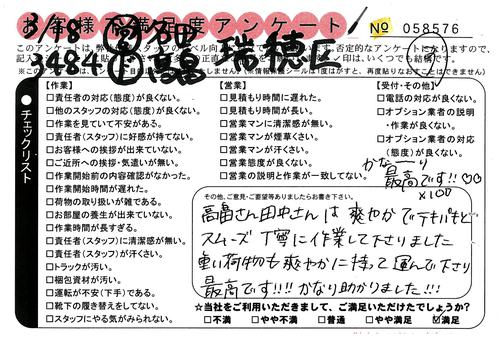 お客様不満足度アンケート
№ 058576
3/18 田中
3484 高畠 瑞穂区
チェックリスト
【作業】
□責任者の対応(態度)が良くない。
□他のスタッフの対応(態度)が良くない。
□作業を見ていて不安がある。
□責任者(スタッフ)に好感が持てない。
□お客様への挨拶が出来ていない。
□ご近所への挨拶・気遣いが無い。
□作業開始前の内容確認がなかった。
□作業開始時間が遅れた。
□荷物の取り扱いが雑である。
□お部屋の養生が出来ていない。
□作業時間が長すぎる。
□責任者(スタッフ)に清潔感が無い。
□責任者(スタッフ)が汗くさい。
□トラックが汚い。
□梱包資材が汚い。
□運転が不安(下手)である。
□靴下の履き替えをしてない。
□スタッフにやる気がみられない。
【営業】
□見積もり時間に遅れた。
□見積もり時間が長い。
□営業マンに清潔感が無い。
□営業マンが煙草くさい。
□営業マンが汗くさい。
□営業態度が良くない。
□営業の説明と作業が一致してない。
【受付・その他】
□電話の対応が良くない。
□オプション業者の説明
・作業が良くない。
□オプション業者の対応
(態度)が良くない。
かな〜り
最高です!!♡♡
×100
その他、ご意見・ご要望等ありましたらお書き下さい。
高畠さん田中さんは 爽やかでテキパキと
スムーズ 丁寧に作業して下さりました
重い荷物も爽やかに持って運んで下さり
最高です!!!!かなり助かりました!!!
☆当社をご利用いただきまして、ご満足いただけたでしょうか?
□不満 □やや不満 □普通 □やや満足 ☑満足